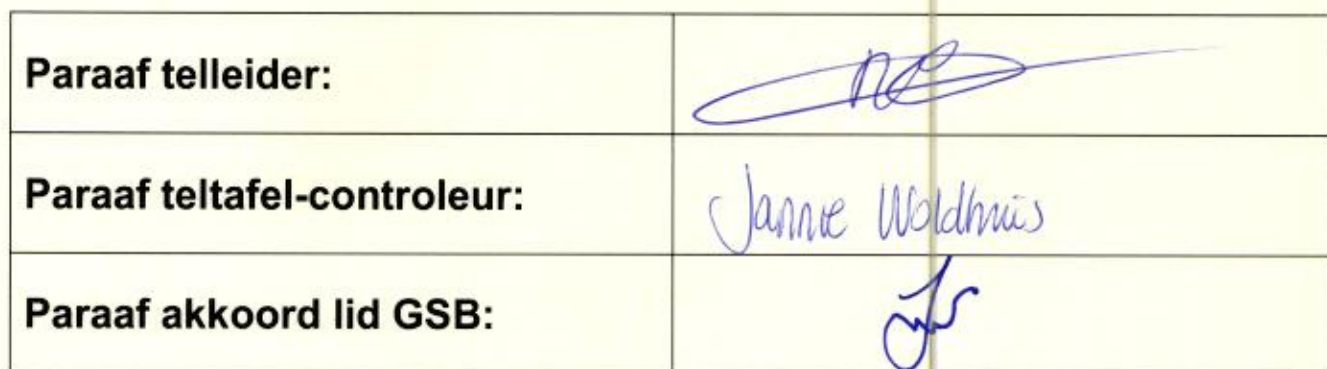 Paraaf telleider:
Paraaf teltafel-controleur: Jannie Woldhuis
Paraaf akkoord lid GSB: